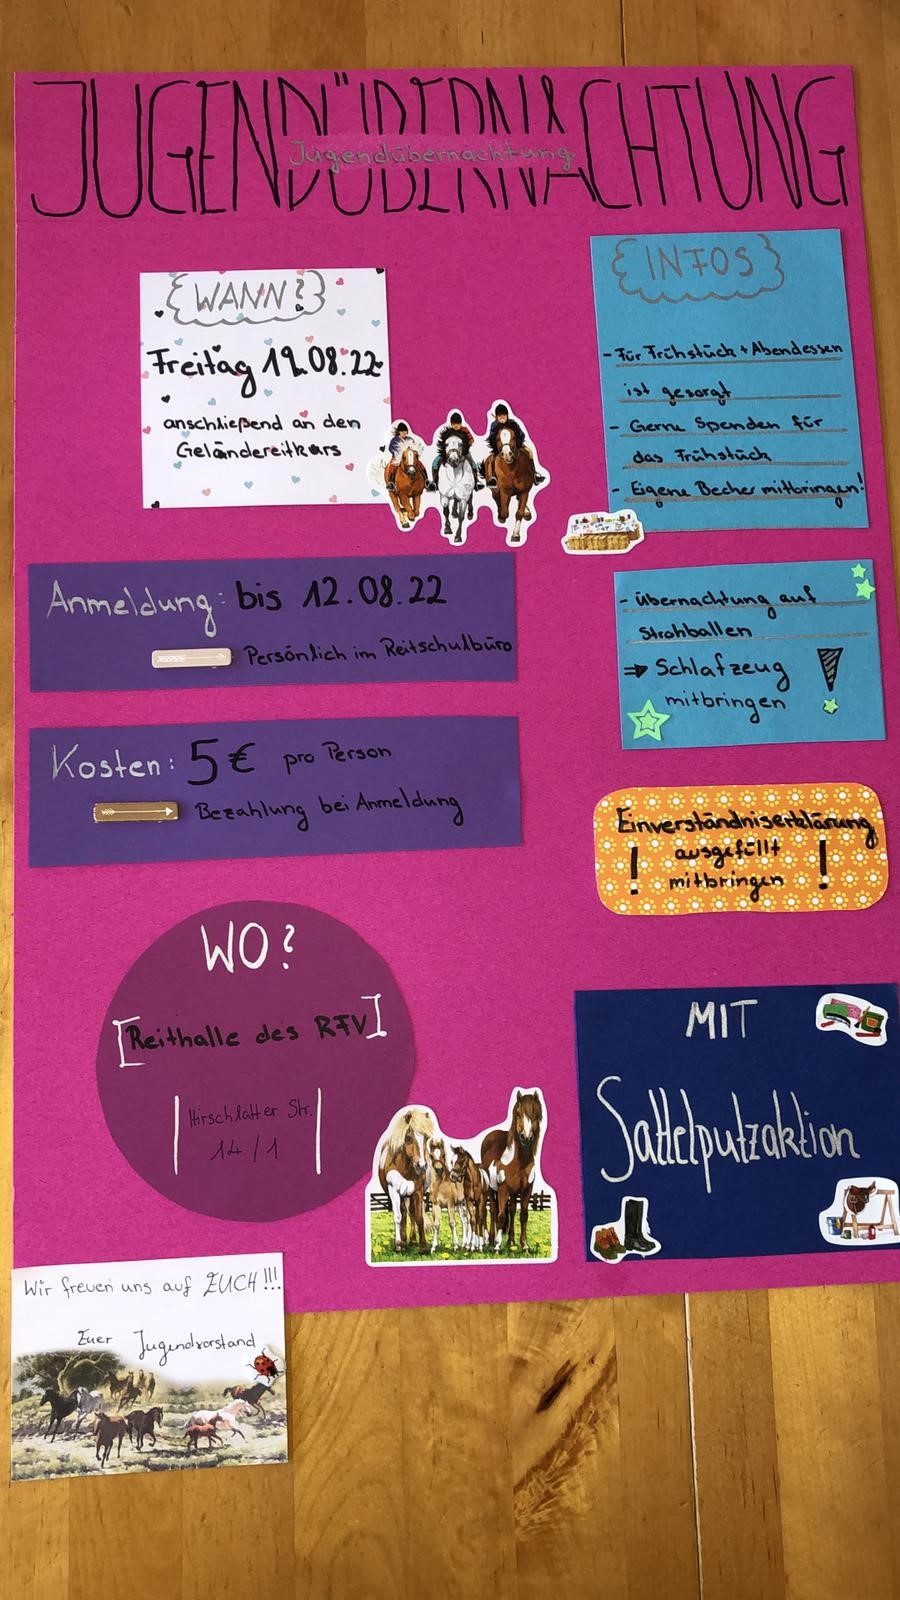 JUGENDÜBERNACHTUNG
Jugendübernachtung
WANN?
Freitag 19.08.22
anschließend an den
Geländereitkurs
INFOS
- Für Frühstück + Abendessen
ist gesorgt
- Gerne Spenden für
das Frühstück
- Eigene Becher mitbringen!
Anmeldung: bis 12.08.22
Persönlich im Reitschulbüro
- Übernachtung auf
Strohballen
⇒ Schlafzeug !
mitbringen
Kosten: 5€ pro Person
Bezahlung bei Anmeldung
Einverständniserklärung
! ausgefüllt !
mitbringen
WO?
[Reithalle des RFV]
Hirschlatter Str.
14/1
MIT
Sattelputzaktion
Wir freuen uns auf EUCH!!!
Euer Jugendvorstand